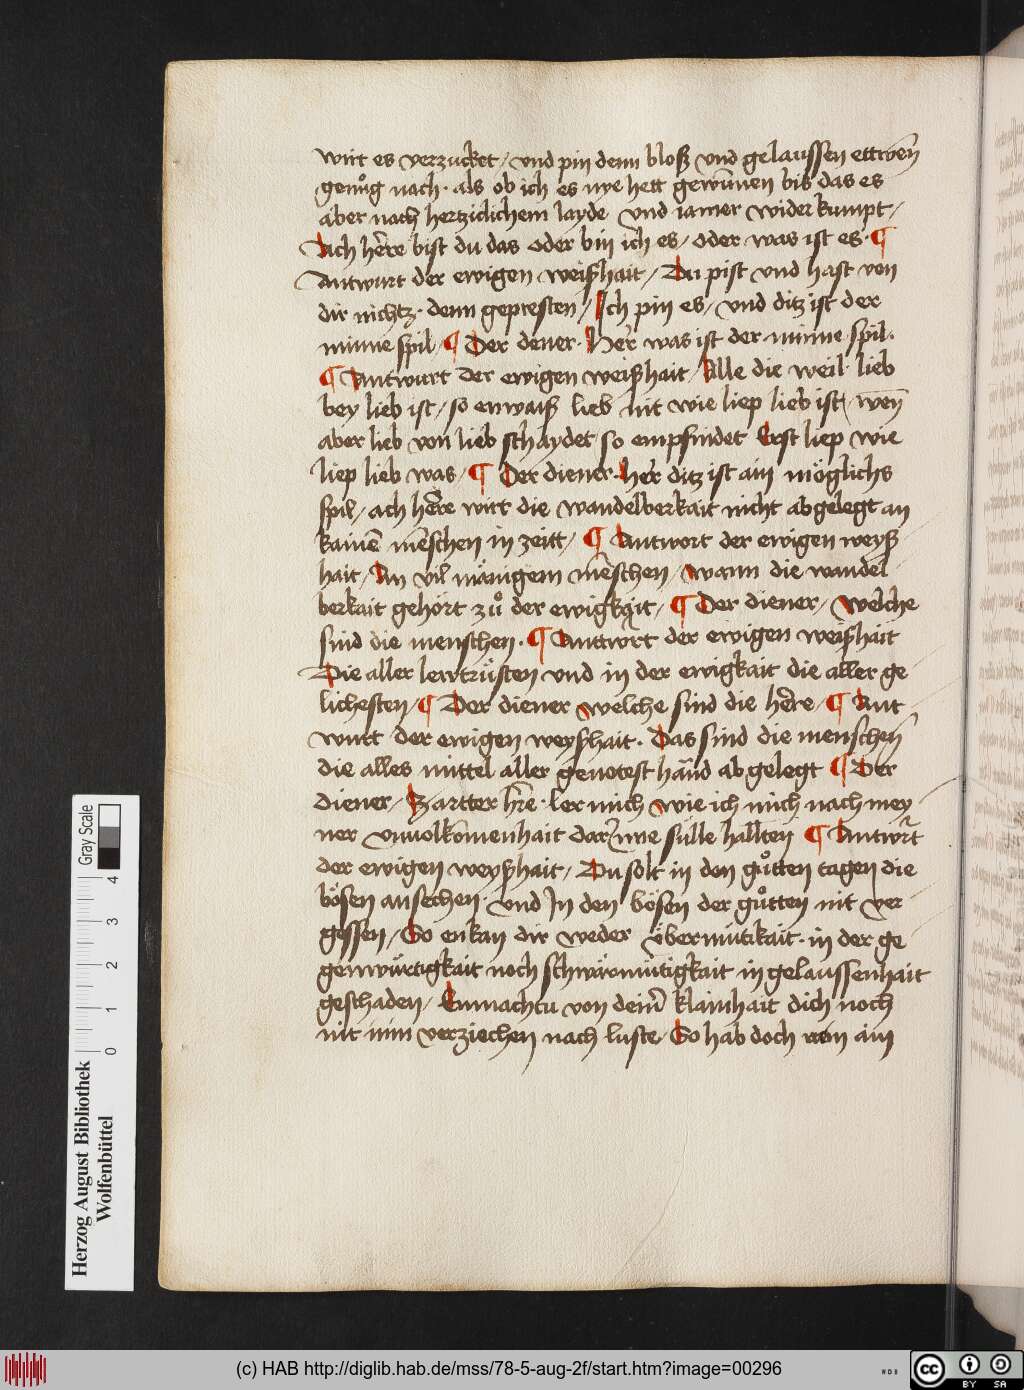 wirt es verzucket / vnd pin denn bloß vnd gelaussen ettwen̄
genuͦg nach · als ob ich es nye hett gewūnen bis das es
aber nach hertziclichem layde vnd iamer wider kumpt /
Ach herre bist du das oder bin ich es / oder was ist es · ¶
Antwurt der ewigen weißhait / Du pist vnd hast von
dir nichtz · denn gepresten / Ich pin es / vnd ditz ist der
minne spil / ¶ Der dener · Her was ist der minne spil ·
¶ Antwurt der ewigen weißhait / Alle die weil lieb
bey lieb ist / so enwaiß lieb nit wie liep lieb ist / wen̄
aber lieb von lieb schaydet so empfindet Erst liep wie
liep lieb was / ¶ Der diener · her ditz ist ain möglichs
spil / ach herre wirt die wandelberkait nicht abgelegt an
kainē mēschen in zeitt / ¶ Antwort der ewigen weyß
hait / An vil mänigem mēschen / wann die wandel
berkait gehört zuͦ der ewigkait / ¶ Der diener / welche
sind die menschen · ¶ Anttwrt der ewigen weißhait
Die aller lewtrüsten vnd in der ewigkait die aller ge
lichesten / ¶ Der diener welche sind die herre / ¶ Ant
wurt der ewigen weyßhait · Das sind die menschen
die alles mittel aller genotest hand abgelegt ¶ Der
diener / Zartter hre · ler mich wie ich mich nach mey
ner vnuolkomenhait dar nne sülle hallten ¶ Antwrt
der ewigen weyßhait / Du solt in den guͦtten tagen die
bösen ansechen · vnd In den bösen der guͦtten nit ver
gessen / So enkan dir weder übermütikait · in der ge
genwürtigkait noch schwärmütigkait in gelaussenhait
geschaden / Enmachtu von deinr klainhait dich noch
nit mim verziechen nach luste / So hab doch ain
Herzog August Bibliothek
Wolfenbüttel
0 1 2 3 4
Gray Scale
(c) HAB http://diglib.hab.de/mss/78-5-aug-2f/start.htm?image=00296
WDB
cc
BY SA